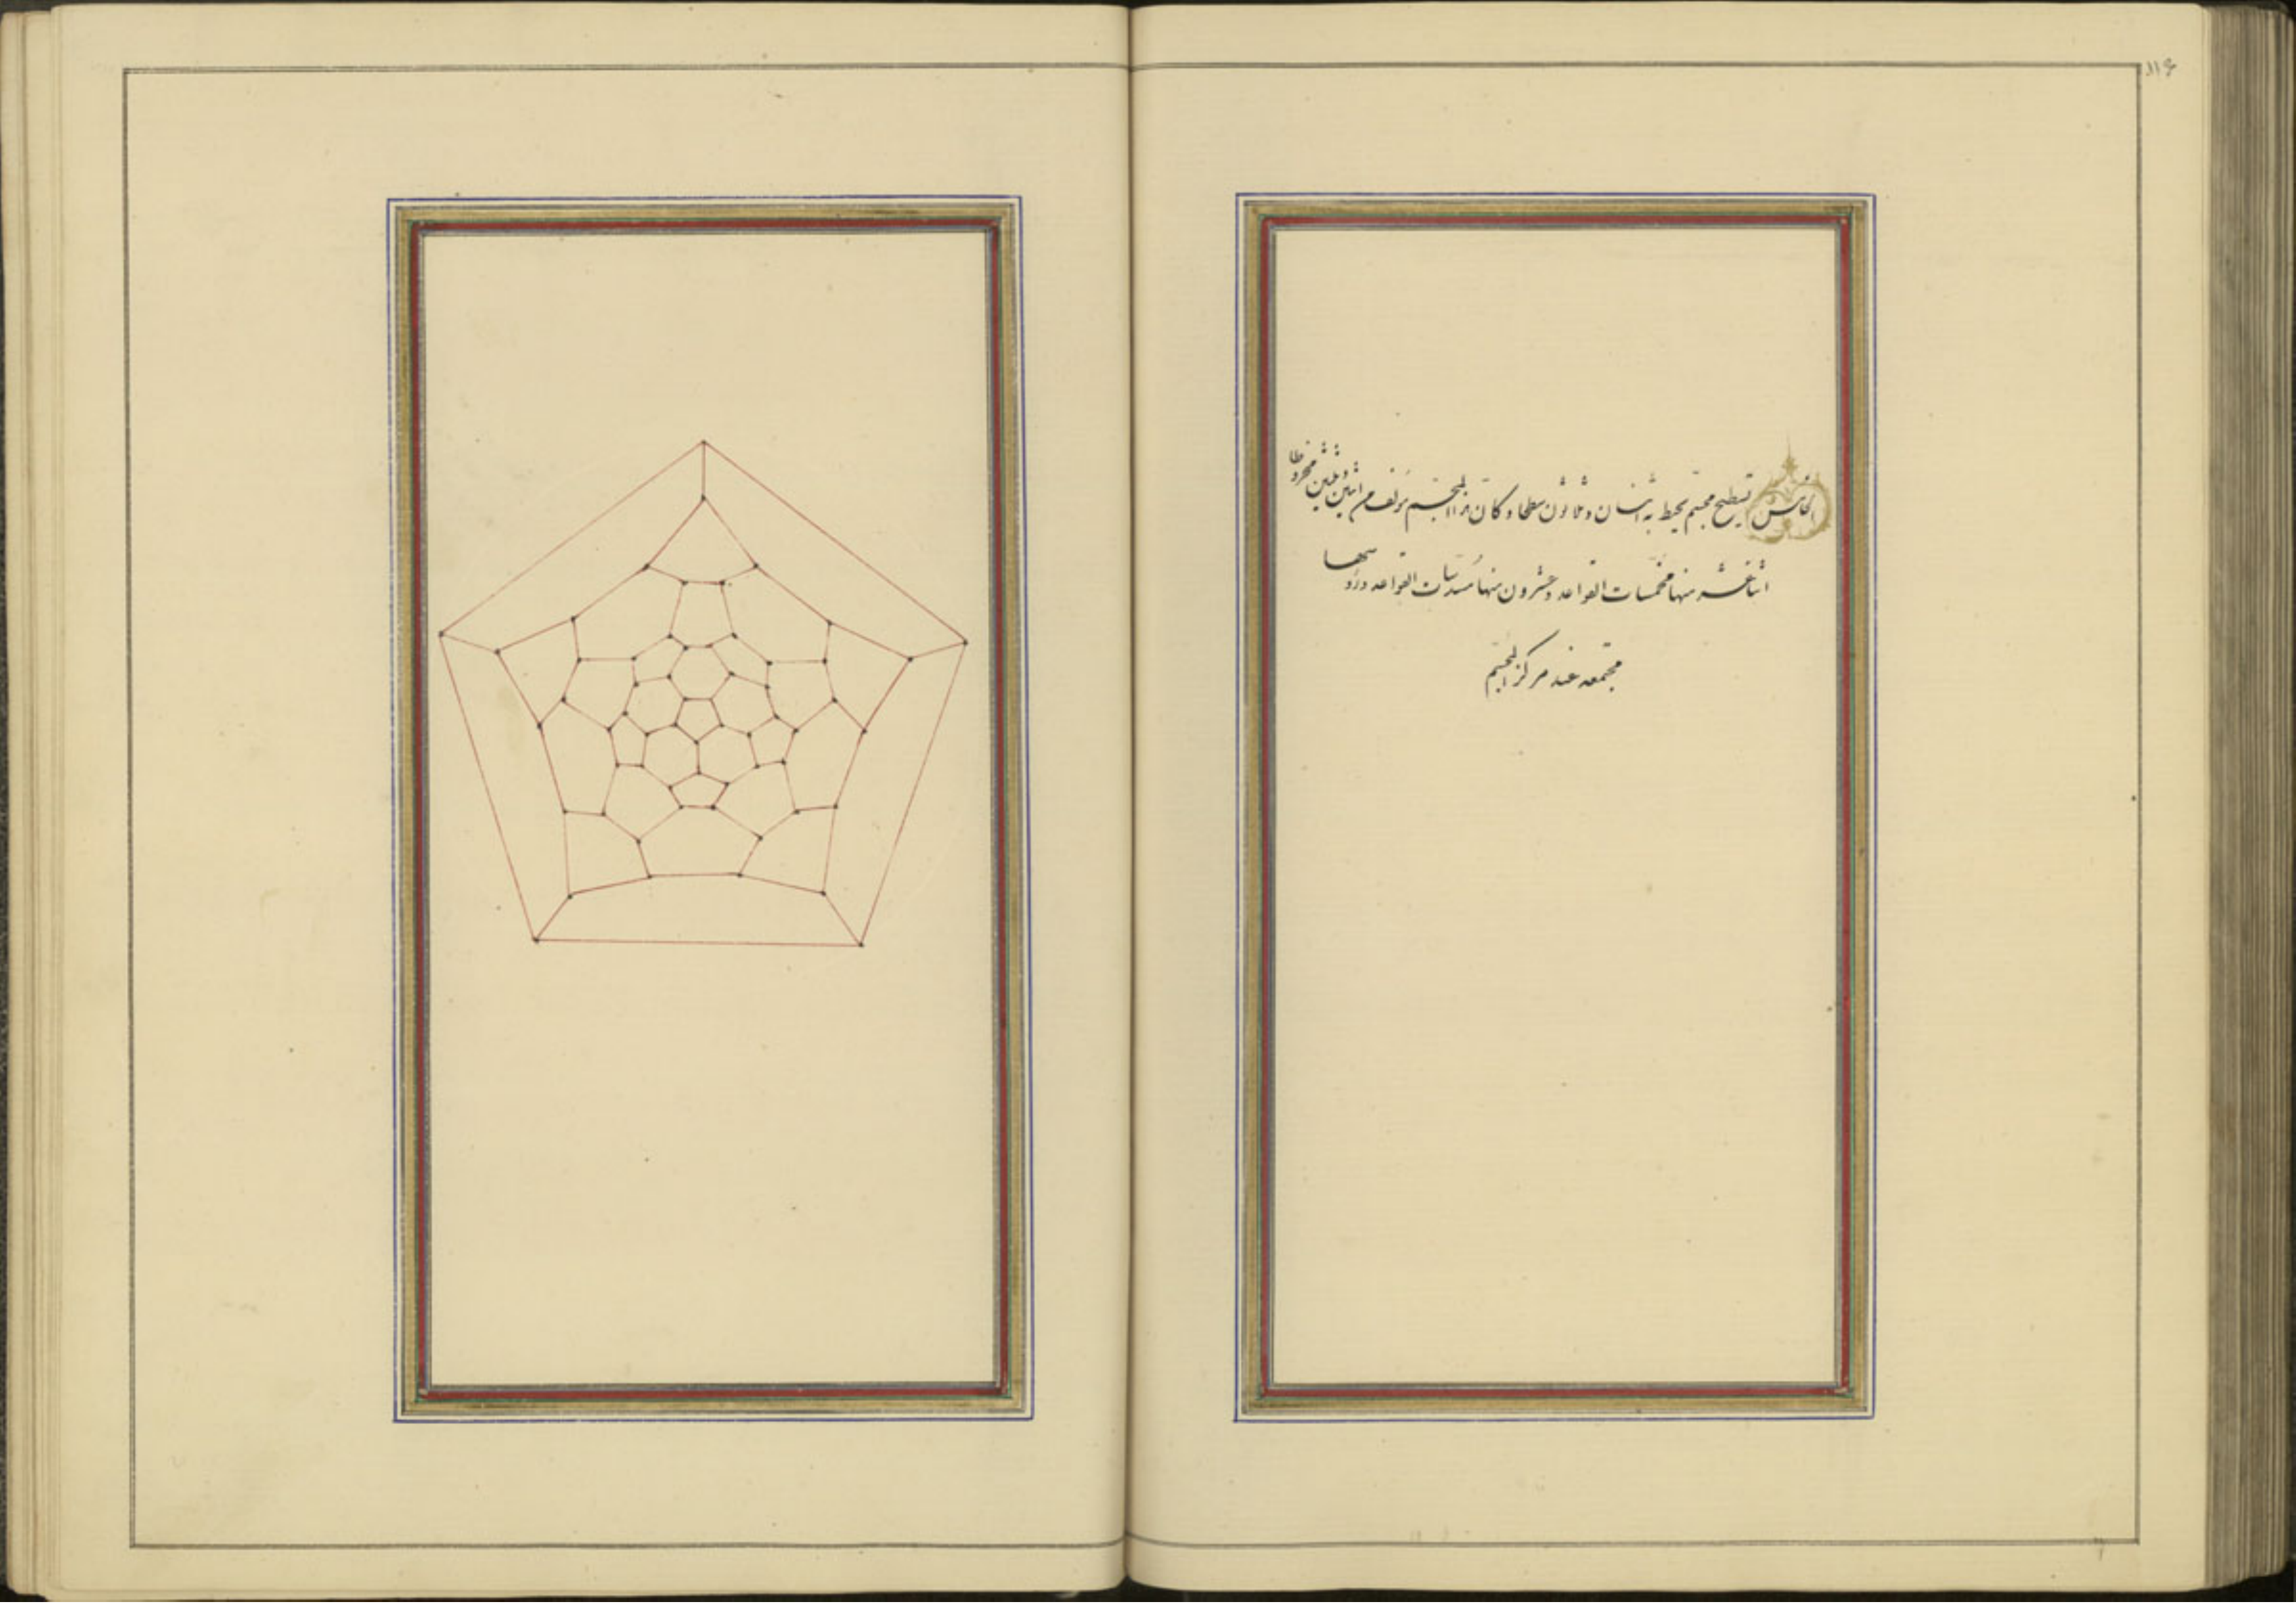 ۱۱۶
الخامس تسطیح مجسّم یحیط به اثنان و ثلاثون سطحا و کانّ هذا المجسّم مؤلف من اثنین و ثلثین مخروطا
اثنا عشر منها مخمّسات القواعد و عشرون منها مسدّسات القواعد و رؤسها
مجتمعه عند مرکز المجسّم